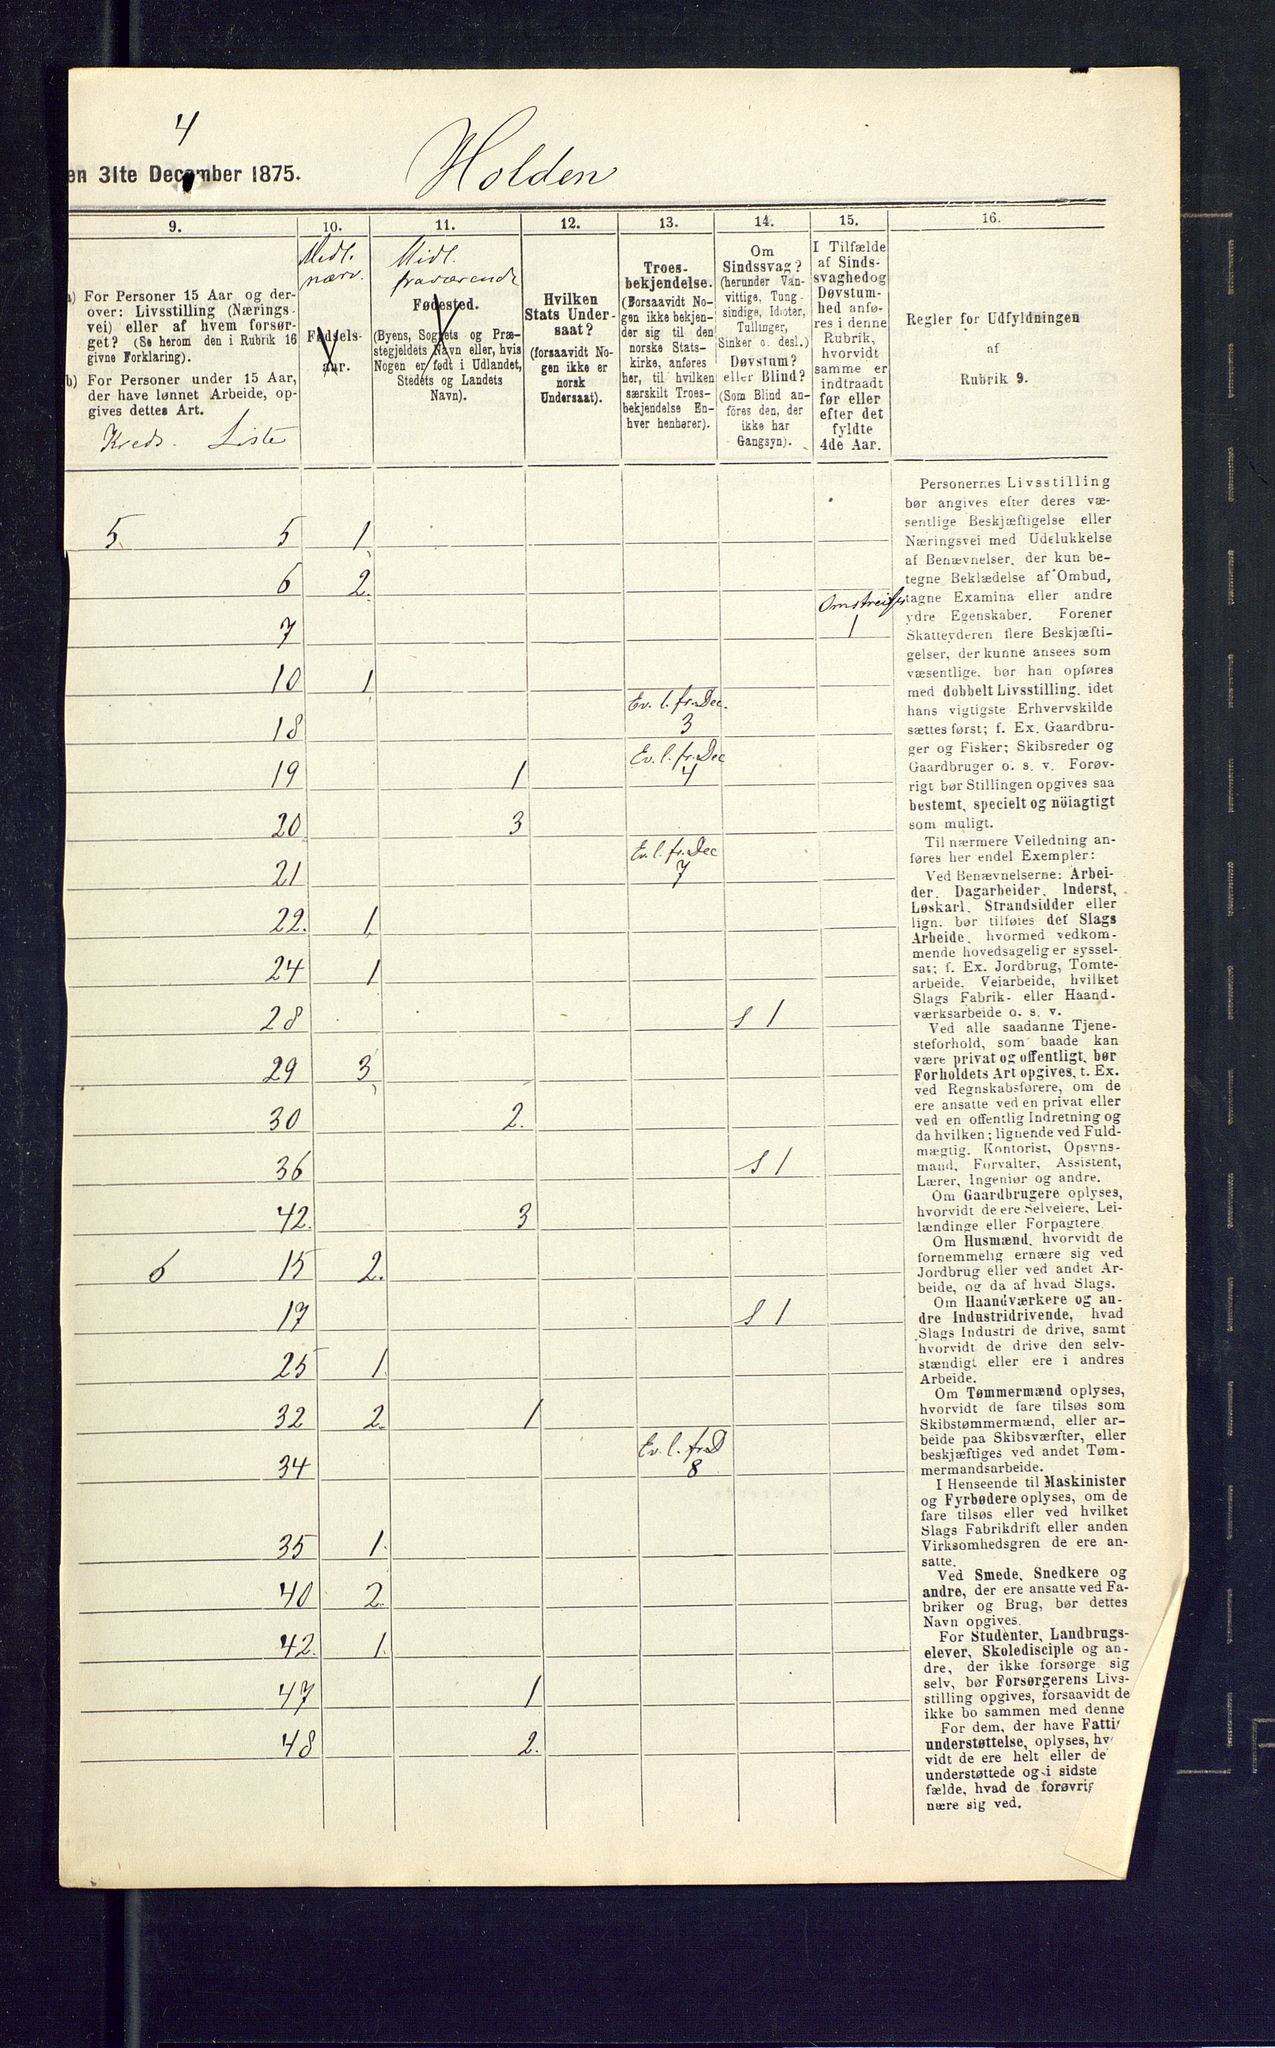 4
en 31te December 1875.
Holden
9.
10.
11.
12.
13.
14.
15.
16.
a) For Personer 15 Aar og der-
over: Livsstilling (Nærings-
vei) eller af hvem forsør-
get? (Se herom den i Rubrik 16
givne Forklaring).
b) For Personer under 15 Aar,
der have lønnet Arbeide, op-
gives dettes Art.
Kreds. Liste
Midl.
nærv.
Fødsels-
aar.
Midl.
fraværende
Fødested.
(Byens, Sognets og Præ-
stegjeldets Navn eller, hvis
Nogen er født i Udlandet,
Stedets og Landets
Navn).
Hvilken
Stats Under-
saat?
(forsaavidt No-
gen ikke er
norsk
Undersaat).
Troes-
bekjendelse.
(Forsaavidt No-
gen ikke bekjen-
der sig til den
norske Stats-
kirke, anføres
her, til hvilken
særskilt Troes-
bekjendelse En-
hver henhører).
Om
Sindssvag?
(herunder Van-
vittige, Tung-
sindige, Idioter,
Tullinger,
Sinker o. desl.)
Døvstum?
eller Blind?
(Som Blind an-
føres den, der
ikke har
Gangsyn).
I Tilfælde
af Sinds-
svaghed og
Døvstum-
hed anfø-
res i denne
Rubrik,
hvorvidt
samme er
indtraadt
før eller
efter det
fyldte
4de Aar.
Regler for Udfyldningen
af
Rubrik 9.
5. 5 1
6 2.
7 Omstreifer 1
10 1
18 Ev. l. fr. Dec. 3
19 1 Ev. l. fr. Dec 4
20 3
21 Ev. l. fr. Dec 7
22. 1
24 1
28 S 1
29 3
30 2.
36 S 1
42. 3
6 15 2.
17 S 1
25 1.
32 2. 1
34 Ev. l. fr. D 8
35 1.
40 2.
42. 1.
47 1
48 2.
Personernes Livsstilling
bør angives efter deres væ-
sentlige Beskjæftigelse eller
Næringsvei med Udelukkelse
af Benævnelser, der kun be-
tegne Beklædelse af Ombud,
tagne Examina eller andre
ydre Egenskaber. Forener
Skatteyderen flere Beskjæfti-
gelser, der kunne ansees som
væsentlige, bør han opføres
med dobbelt Livsstilling, idet
hans vigtigste Erhvervskilde
sættes først; f. Ex. Gaardbru-
ger og Fisker; Skibsreder og
Gaardbruger o. s. v. Forøv-
rigt bør Stillingen opgives saa
bestemt, specielt og nöiagtigt
som muligt.
Til nærmere Veiledning an-
føres her endel Exempler:
Ved Benævnelserne: Arbei-
der, Dagarbeider, Inderst,
Løskarl, Strandsidder eller
lign. bør tilføies det Slags
Arbeide, hvormed vedkom-
mende hovedsagelig er syssel-
sat; f. Ex. Jordbrug, Tomte-
arbeide, Veiarbeide, hvilket
Slags Fabrik- eller Haand-
værksarbeide o. s. v.
Ved alle saadanne Tjene-
steforhold, som baade kan
være privat og offentligt, bør
Forholdets Art opgives, t. Ex.
ved Regnskabsførere, om de
ere ansatte ved en privat eller
ved en offentlig Indretning og
da hvilken; lignende ved Fuld-
mægtig, Kontorist, Opsyns-
mand, Forvalter, Assistent,
Lærer, Ingeniør og andre.
Om Gaardbrugere oplyses,
hvorvidt de ere Selveiere, Lei-
lændinge eller Forpagtere.
Om Husmænd, hvorvidt de
fornemmelig ernære sig ved
Jordbrug eller ved andet Ar-
beide, og da af hvad Slags.
Om Haandværkere og an-
dre Industridrivende, hvad
Slags Industri de drive, samt
hvorvidt de drive den selv-
stændigt eller ere i andres
Arbeide.
Om Tømmermænd oplyses,
hvorvidt de fare tilsøs som
Skibstømmermænd, eller ar-
beide paa Skibsværfter, eller
beskjæftiges ved andet Tøm-
mermandsarbeide.
I Henseende til Maskinister
og Fyrbødere oplyses, om de
fare tilsøs eller ved hvilket
Slags Fabrikdrift eller anden
Virksomhedsgren de ere an-
satte.
Ved Smede, Snedkere og
andre, der ere ansatte ved Fa-
briker og Brug, bør dettes
Navn opgives.
For Studenter, Landbrugs-
elever, Skoledisciple og an-
dre, der ikke forsørge sig
selv, bør Forsørgerens Livs-
stilling opgives, forsaavidt de
ikke bo sammen med denne
For dem, der have Fatti
understøttelse, oplyses, hv
vidt de ere helt eller de
understøttede og i sidste
fælde, hvad de forøvrig
nære sig ved.